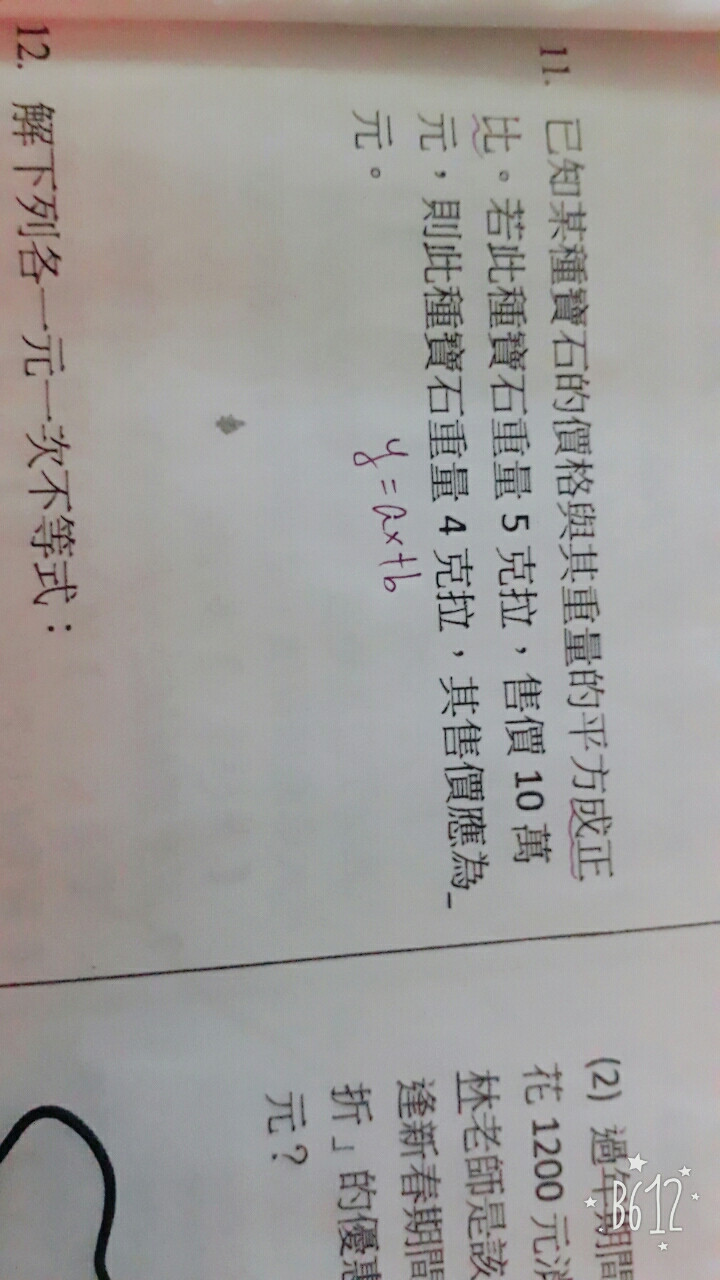 11. 已知某種寶石的價格與其重量的平方成正
比。若此種寶石重量 5 克拉，售價 10 萬
元，則此種寶石重量 4 克拉，其售價應為_
元。
y = ax+b
12. 解下列各一元一次不等式：
(2) 過年期間
花 1200 元消
林老師是該
逢新春期間
折」的優惠
元？
B612